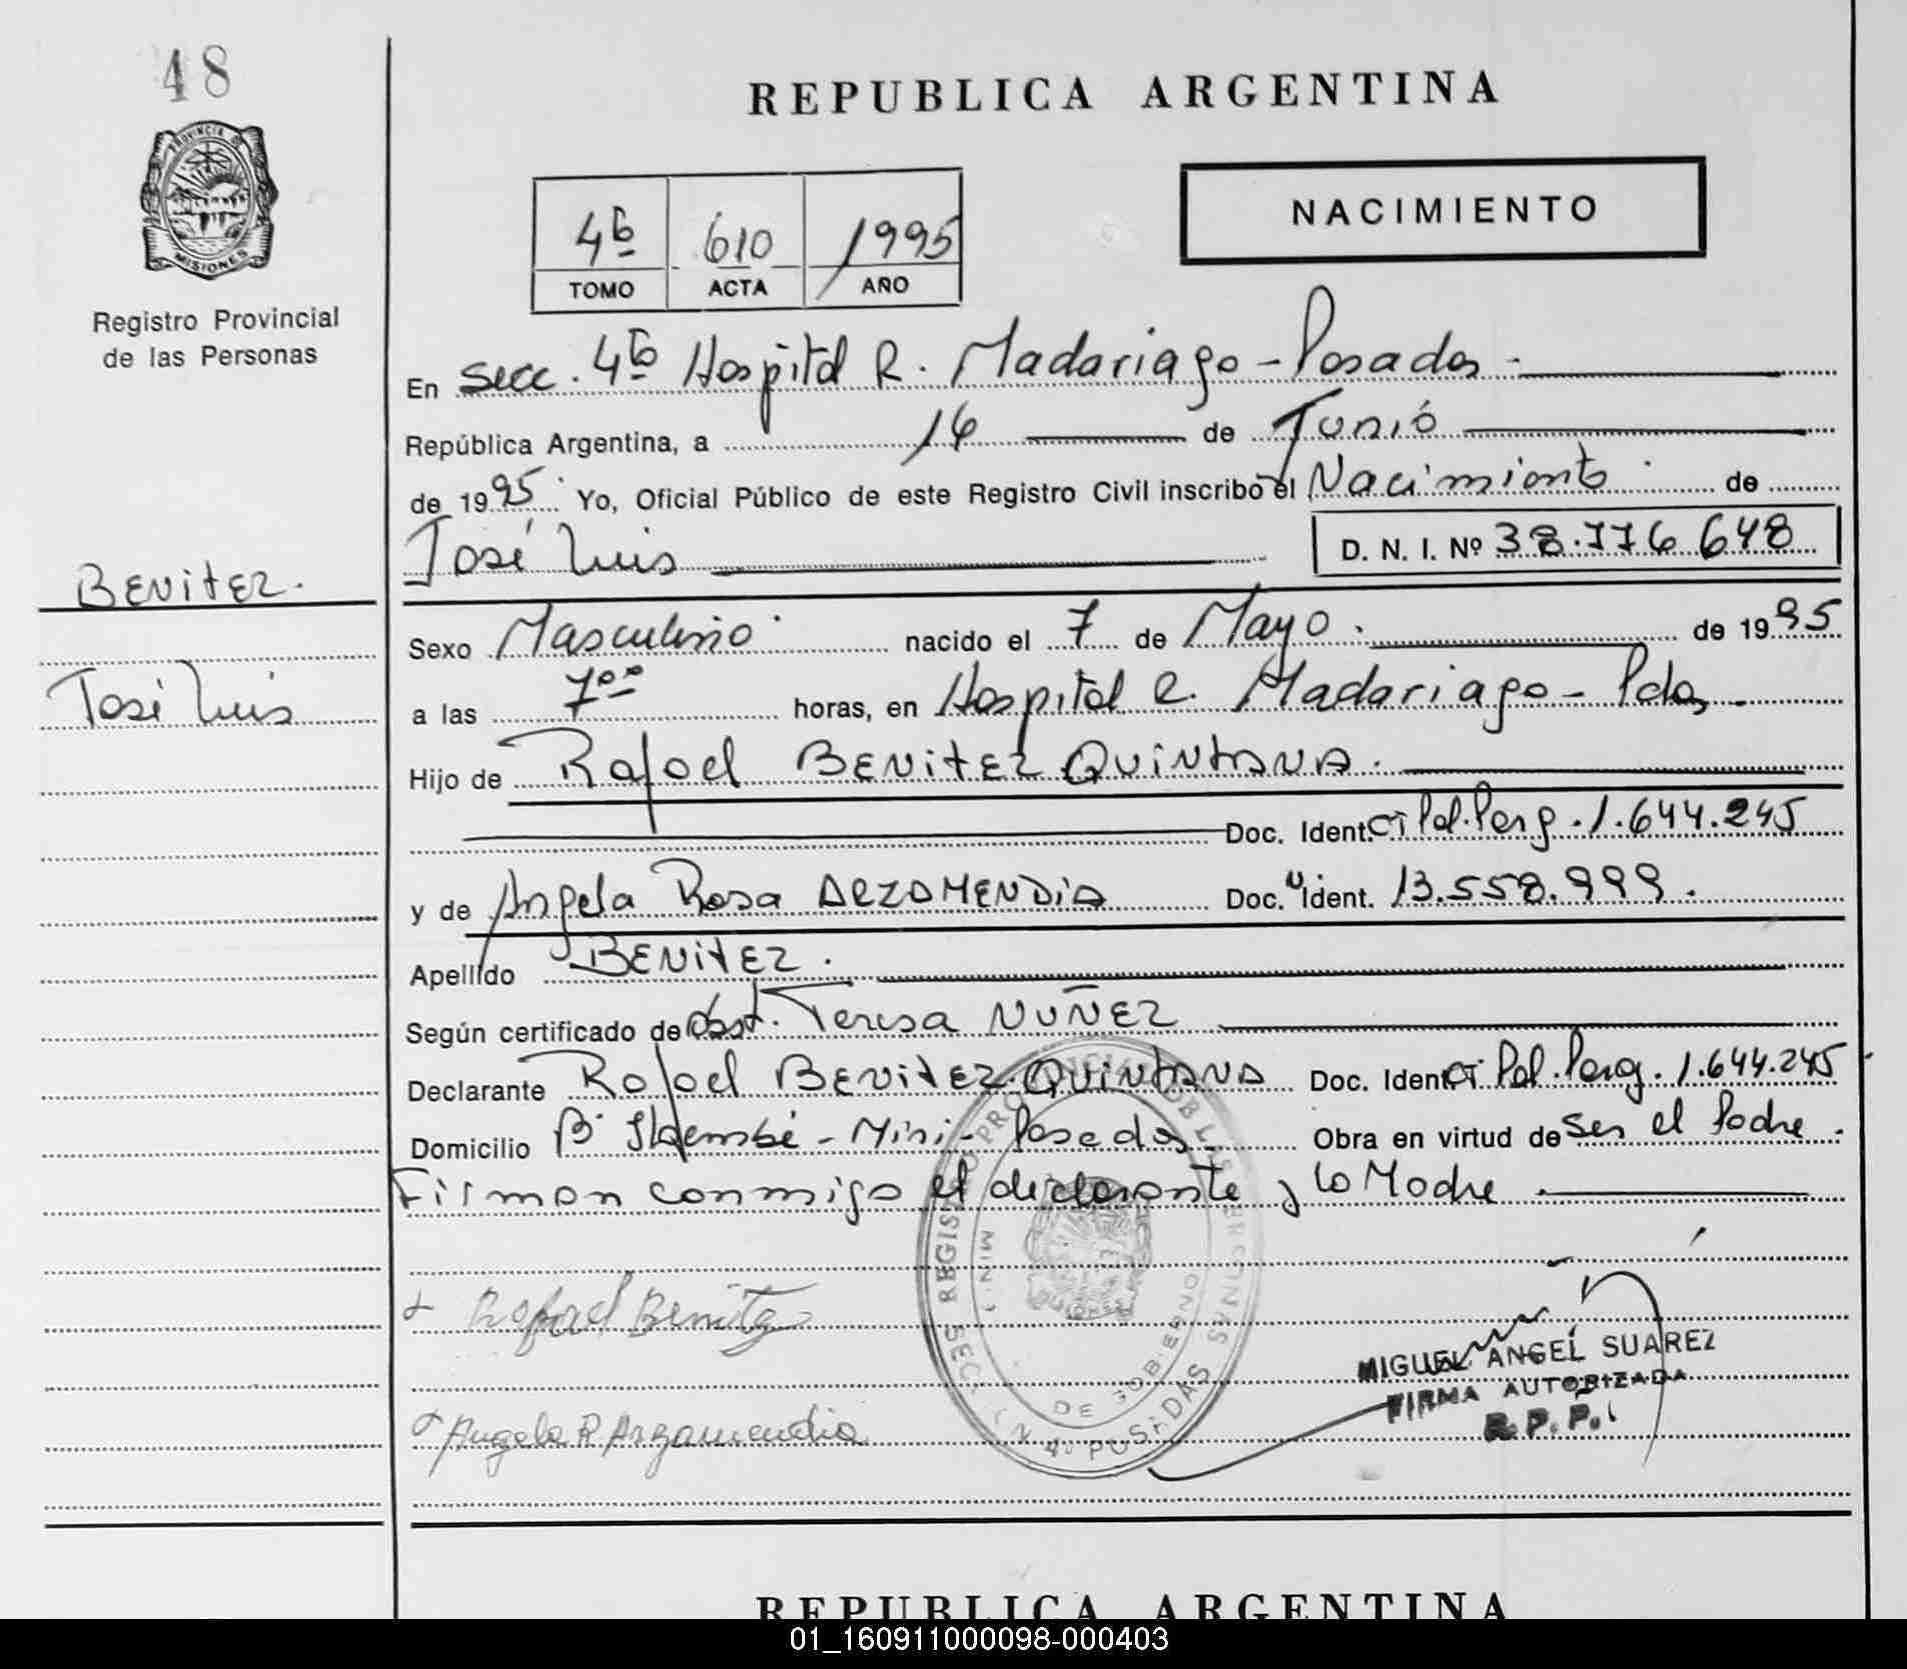 48
REPUBLICA ARGENTINA
PROVINCIA DE
MISIONES
Registro Provincial
de las Personas
NACIMIENTO
4to 610 1995
TOMO ACTA AÑO
En Secc. 4to Hospital R. Madariaga - Posadas -
República Argentina, a 14 de Junio
de 1995. Yo, Oficial Público de este Registro Civil inscribo el Nacimiento de
José Luis D. N. I. Nº 38.776.648
BENITEZ.
José Luis
Sexo Masculino nacido el 7 de Mayo. de 1995
a las 7oo horas, en Hospital R. Madariaga - Pdas -
Hijo de Rafael BENITEZ QUINTANA.
Doc. Ident. CI Pol. Parg. 1.644.245
y de Angela Rosa ARZAMENDIA Doc. Ident. 13.558.999.
Apellido BENITEZ.
Según certificado de Obst. Teresa NUÑEZ
Declarante Rafael BENITEZ QUINTANA Doc. Ident. CI Pol. Parg. 1.644.245
Domicilio Bº Itaembé - Mini - Posadas. Obra en virtud de ser el Padre.
Firman conmigo el declarante y la Madre.
Rafael Benitez
Angela R Arzamendia
MIGUEL ANGEL SUAREZ
FIRMA AUTORIZADA
R. P. P.
REPUBLICA ARGENTINA
01_160911000098-000403